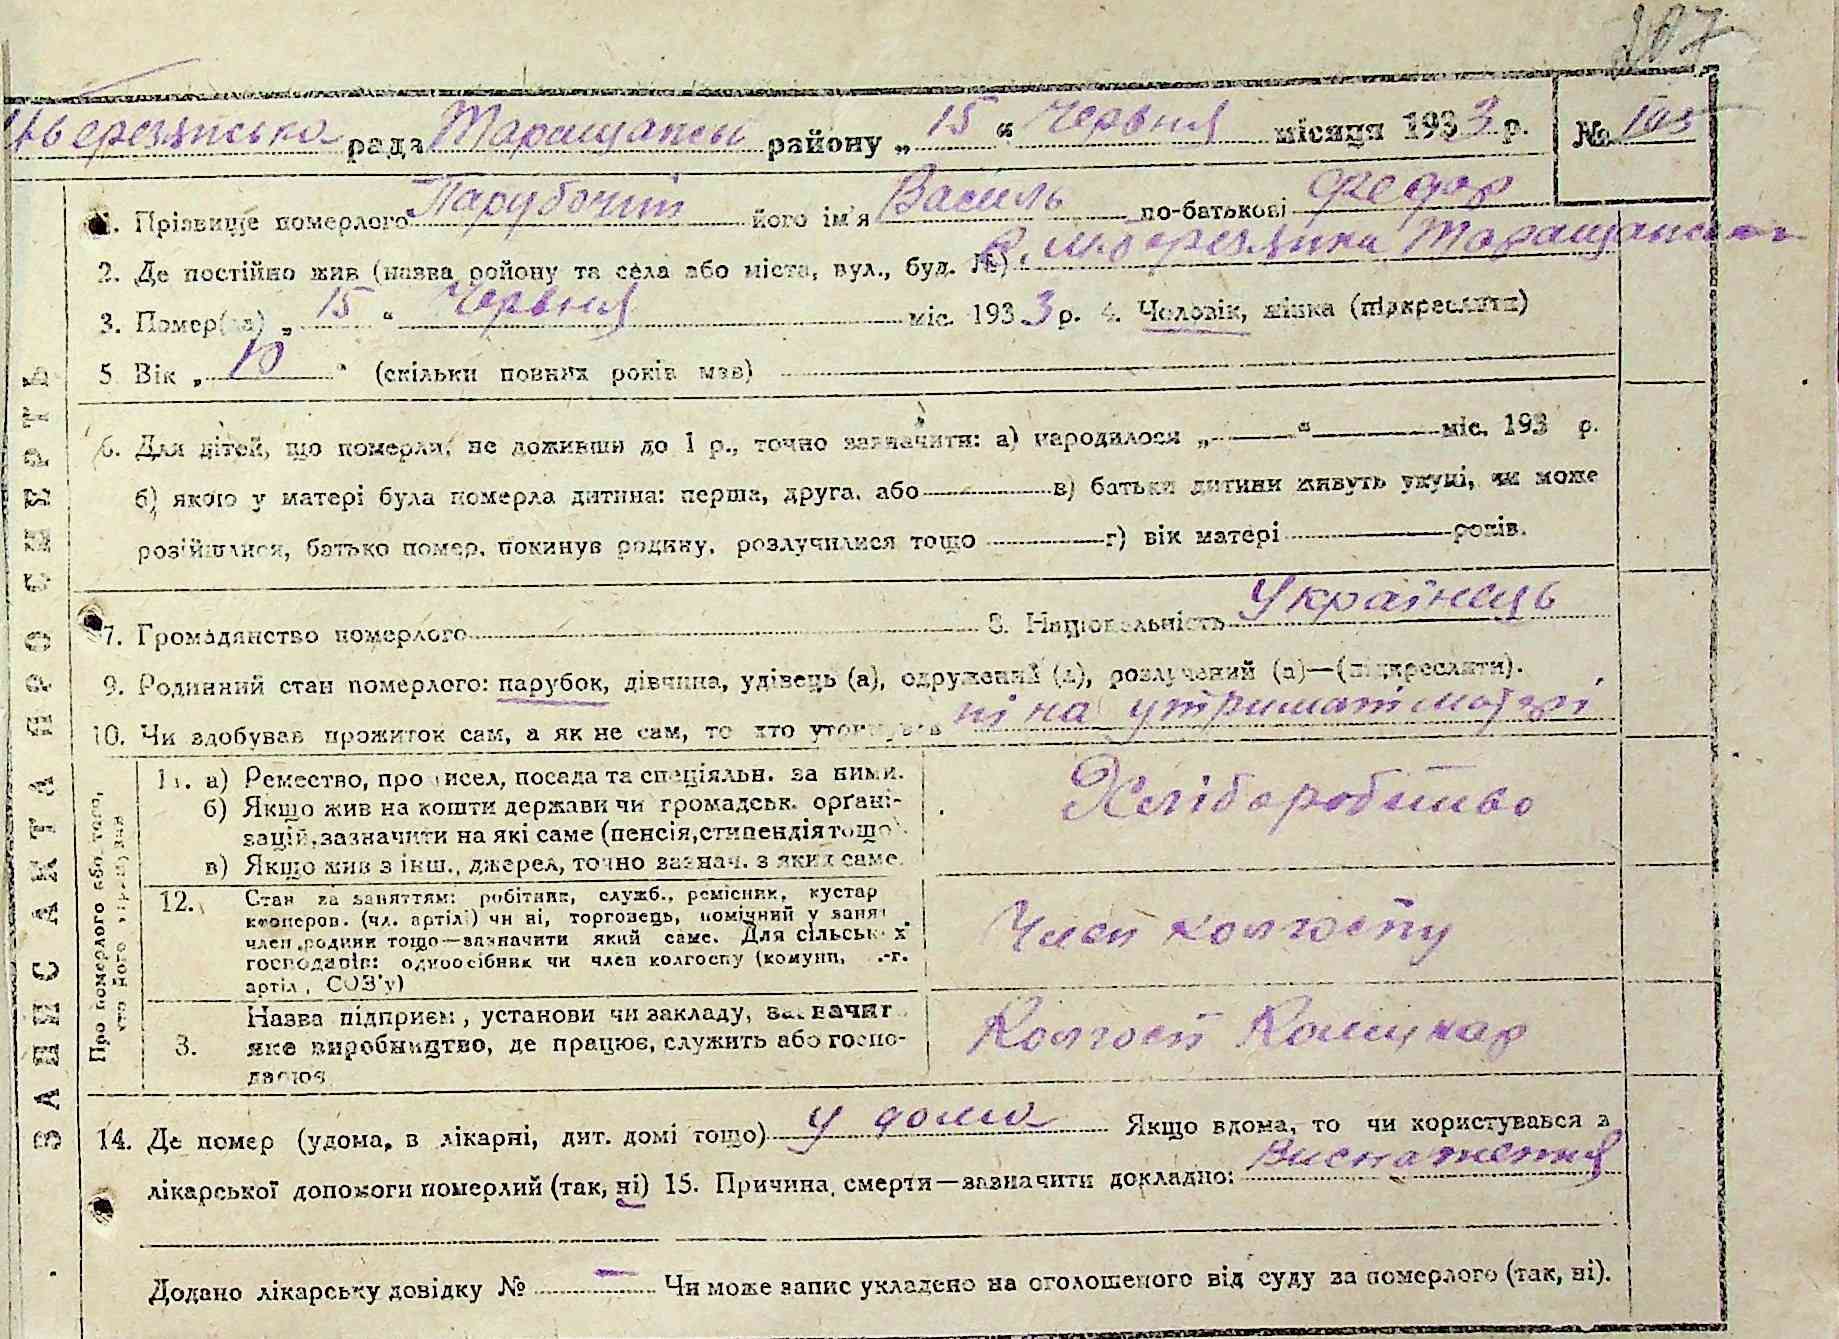 207
рада Таращанськ району „ 15 “ Червня місяця 1933 р. № 105
1. Прізвище померлого Парубочий його ім'я Василь по-батькові Федор
2. Де постійно жив (назва району та села або міста, вул., буд. №)
3. Помер(ла) „ 15 “ Червня міс. 1933 р. 4. Чоловік, жінка (підкреслити)
5. Вік „ 10 “ (скільки повних років мав)
6. Для дітей, що померли, не доживши до 1 р., точно зазначити: а) народилося „ — “ — міс. 193 р.
б) якою у матері була померла дитина: перша, друга, або — в) батьки дитини живуть укупі, чи може
розійшлися, батько помер, покинув родину, розлучилися тощо — г) вік матері — років.
7. Громадянство померлого 8. Національність Українець
9. Родинний стан померлого: парубок, дівчина, удівець (а), одружений (а), розлучений (а)—(підкреслити).
10. Чи здобував прожиток сам, а як не сам, то хто утримував ні на утриматі матері
ЗАПИС АКТА ПРО СМЕРТЬ
Про померлого або того, хто його утримував
11. а) Ремество, промисел, посада та спеціяльн. за ними.
б) Якщо жив на кошти держави чи громадськ. орґані-
зацій, зазначити на які саме (пенсія, стипендія тощо).
в) Якщо жив з інш., джерел, точно зазнач. з яких саме.
Хліборобство
12. Стан за заняттям: робітник, служб., ремісник, кустар
кооперов. (чл. артілі) чи ні, торговець, помічний у занят
член родини тощо—зазначити який саме. Для сільських
господарів: одноосібник чи член колгоспу (комуни, с.-г.
артіл, СОЗ'у)
Член колгоспу
3. Назва підприєм, установи чи закладу, зазначит
яке виробництво, де працює, служить або госпо-
дарює
Колгосп Комунар
14. Де помер (удома, в лікарні, дит. домі тощо) у дома Якщо вдома, то чи користувався з
лікарської допомоги померлий (так, ні) 15. Причина смерти—зазначити докладно: Виснаження
Додано лікарську довідку № — Чи може запис укладено на оголошеного від суду за померлого (так, ні).